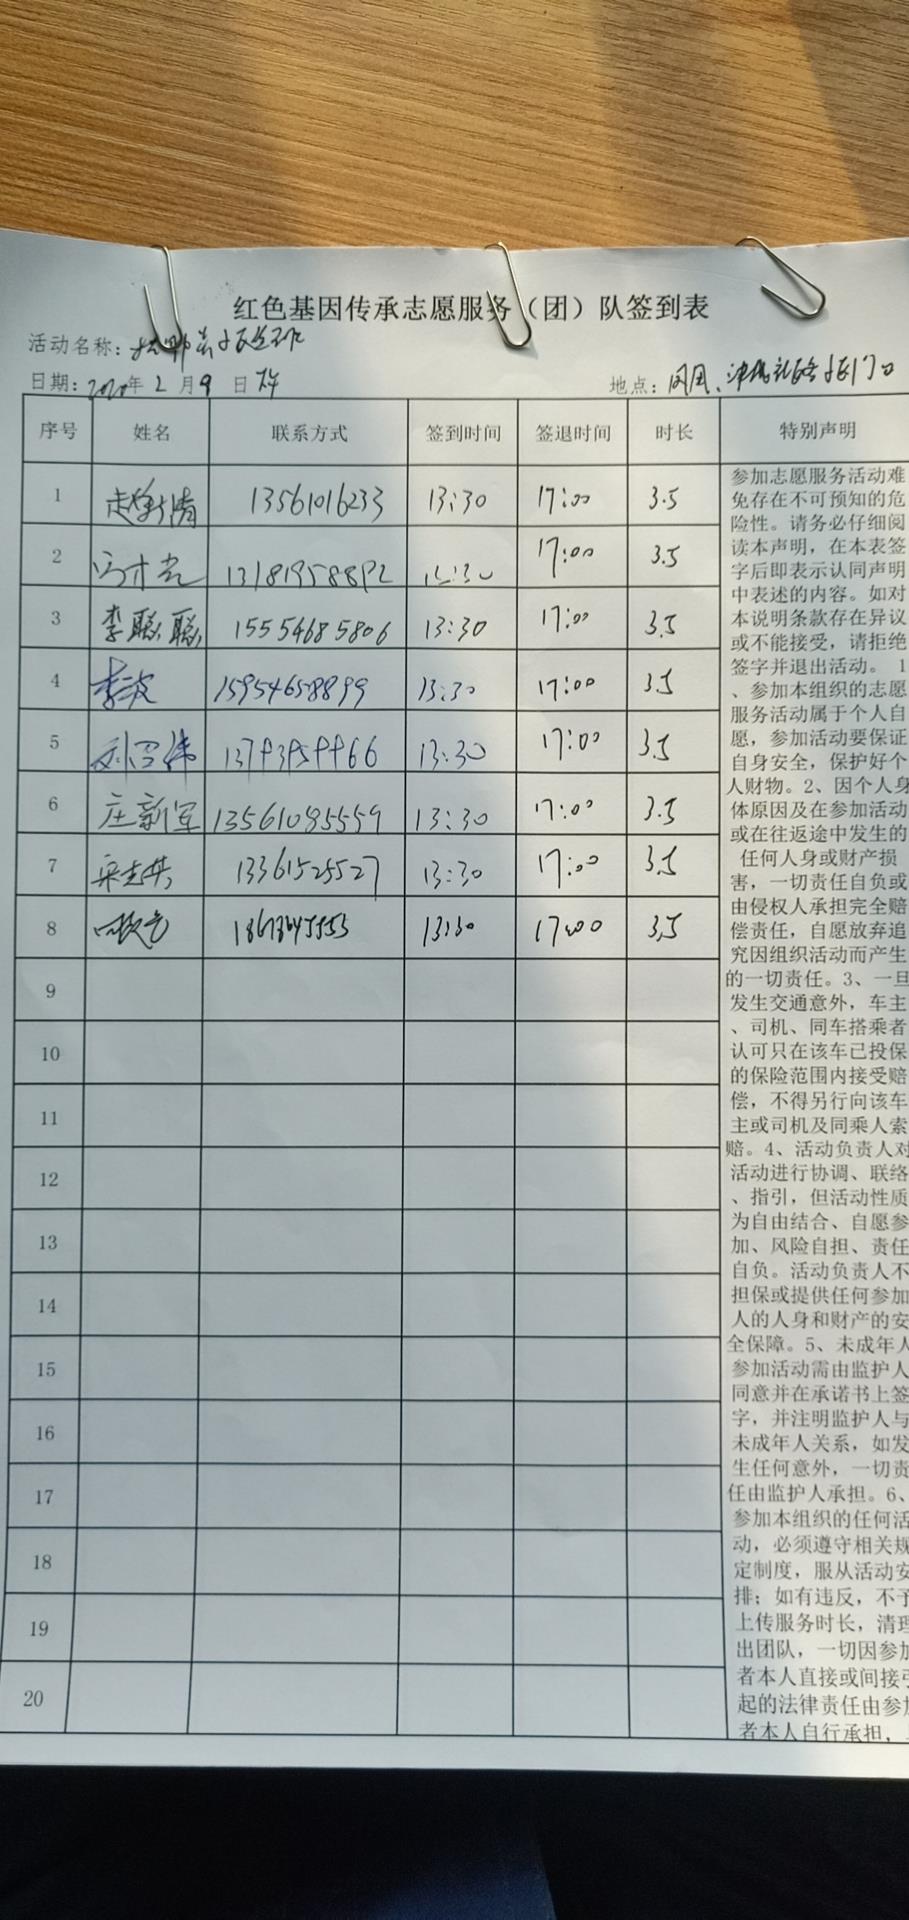 红色基因传承志愿服务（团）队签到表
活动名称：
日期：2020年 2 月 9 日
地点：
序号 姓名 联系方式 签到时间 签退时间 时长 特别声明
1 13561016233 13:30 17:00 3.5
2 13181958892 13:30 17:00 3.5
3 李聪聪 15554685806 13:30 17:00 3.5
4 李波 15954658899 13:30 17:00 3.5
5 13:30 17:00 3.5
6 庄新军 13561095559 13:30 17:00 3.5
7 13361525527 13:30 17:00 3.5
8 13:30 17:00 3.5
9
10
11
12
13
14
15
16
17
18
19
20
参加志愿服务活动难
免存在不可预知的危
险性。请务必仔细阅
读本声明，在本表签
字后即表示认同声明
中表述的内容。如对
本说明条款存在异议
或不能接受，请拒绝
签字并退出活动。 1
、参加本组织的志愿
服务活动属于个人自
愿，参加活动要保证
自身安全，保护好个
人财物。2、因个人身
体原因及在参加活动
或在往返途中发生的
任何人身或财产损
害，一切责任自负或
由侵权人承担完全赔
偿责任，自愿放弃追
究因组织活动而产生
的一切责任。3、一旦
发生交通意外，车主
、司机、同车搭乘者
认可只在该车已投保
的保险范围内接受赔
偿，不得另行向该车
主或司机及同乘人索
赔。4、活动负责人对
活动进行协调、联络
、指引，但活动性质
为自由结合、自愿参
加、风险自担、责任
自负。活动负责人不
担保或提供任何参加
人的人身和财产的安
全保障。5、未成年人
参加活动需由监护人
同意并在承诺书上签
字，并注明监护人与
未成年人关系，如发
生任何意外，一切责
任由监护人承担。6、
参加本组织的任何活
动，必须遵守相关规
定制度，服从活动安
排；如有违反，不予
上传服务时长，清理
出团队，一切因参加
者本人直接或间接引
起的法律责任由参加
者本人自行承担，